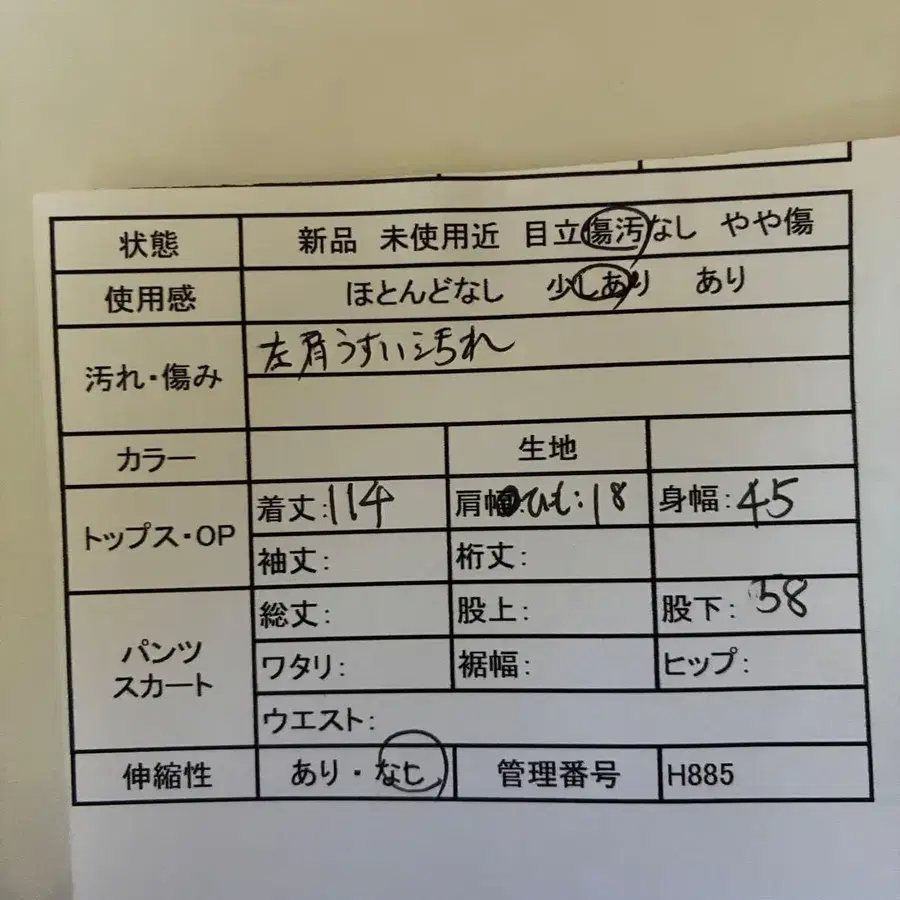 状態 新品 未使用近 目立傷汚なし やや傷
使用感 ほとんどなし 少しあり あり
汚れ・傷み 左肩うすい汚れ
カラー 生地
トップス・OP 着丈:114 肩幅:ひも:18 身幅:45
袖丈: 裄丈:
パンツ スカート 総丈: 股上: 股下: 58
ワタリ: 裾幅: ヒップ:
ウエスト:
伸縮性 あり・なし 管理番号 H885